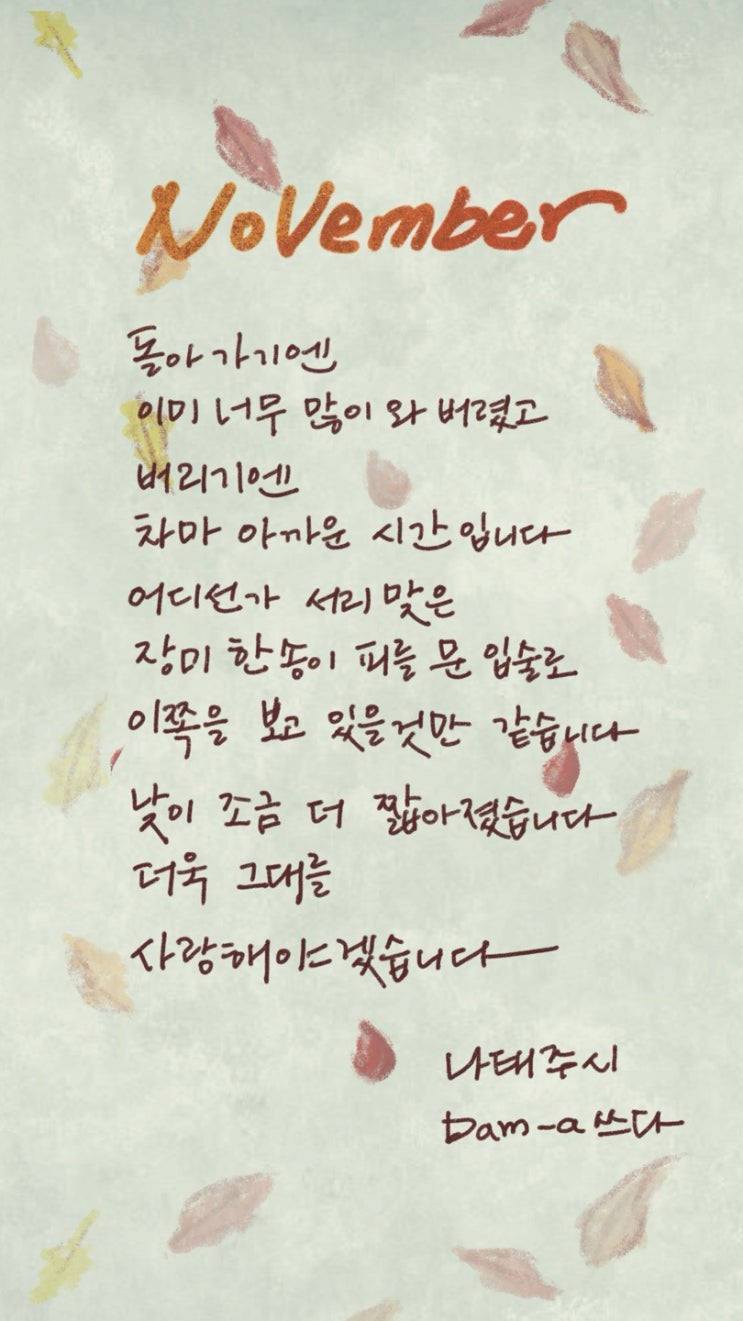 November
돌아가기엔
이미 너무 많이 와 버렸고
버리기엔
차마 아까운 시간입니다
어디선가 서리맞은
장미 한송이 피를 문 입술로
이쪽을 보고 있을것만 같습니다
낮이 조금 더 짧아졌습니다
더욱 그대를
사랑해야겠습니다
나태주시
Dam-a쓰다